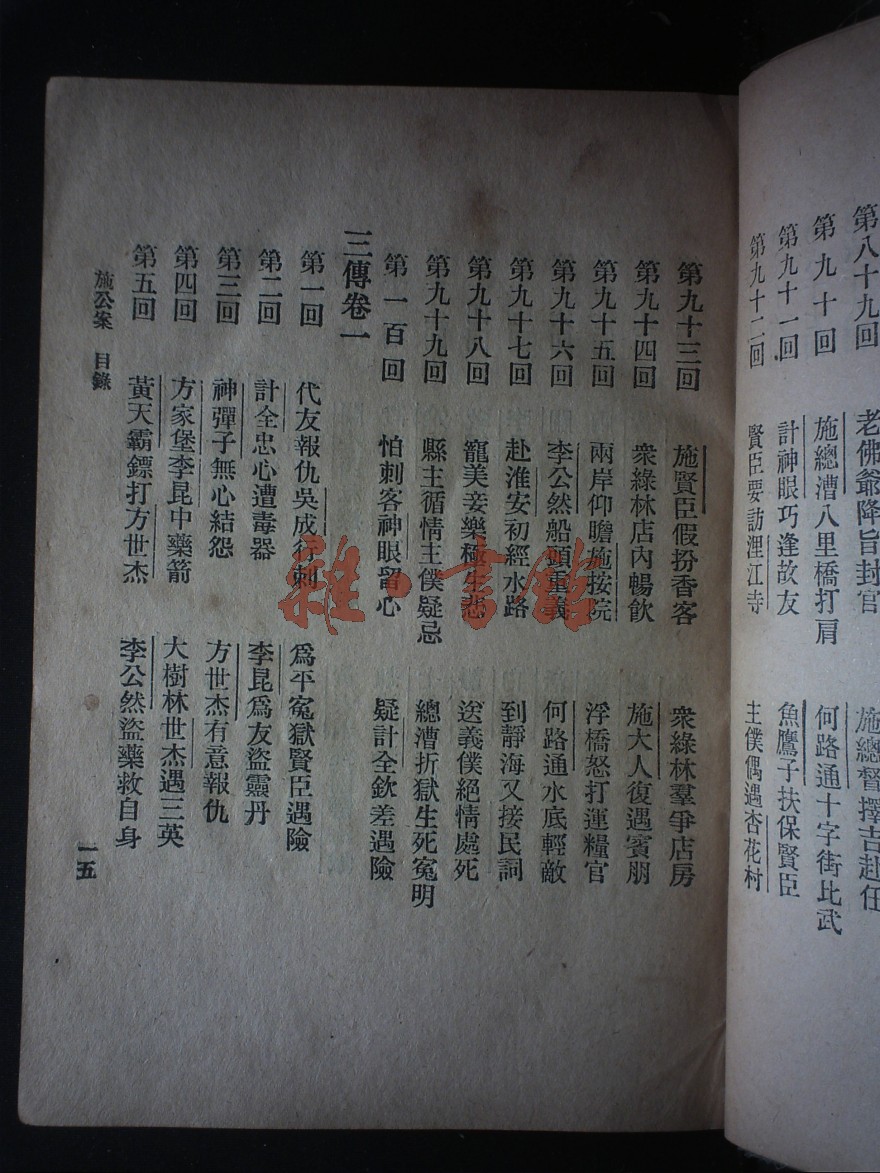 第八十九回 老佛爺降旨封官 施總督擇吉赴任
第九十回 施總漕八里橋打肩 何路通十字街比武
第九十一回 計神眼巧逢故友 魚鷹子扶保賢臣
第九十二回 賢臣要訪浬江寺 主僕偶遇杏花村
第九十三回 施賢臣假扮香客 衆綠林羣爭店房
第九十四回 衆綠林店內暢飲 施大人復遇賓朋
第九十五回 兩岸仰瞻施按院 浮橋怒打運糧官
第九十六回 李公然船頭重義 何路通水底輕敵
第九十七回 赴淮安初經水路 到靜海又接民詞
第九十八回 寵美妾樂極生悲 送義僕絕情處死
第九十九回 縣主循情主僕疑忌 總漕折獄生死冤明
第一百回 怕刺客神眼留心 疑計全欽差遇險
三傳卷一
第一回 代友報仇吳成行刺 爲平冤獄賢臣遇險
第二回 計全忠心遭毒器 李昆爲友盜靈丹
第三回 神彈子無心結怨 方世杰有意報仇
第四回 方家堡李昆中藥箭 大樹林世杰遇三英
第五回 黃天霸鏢打方世杰 李公然盜藥救自身
施公案 目錄 一五
雜·書館